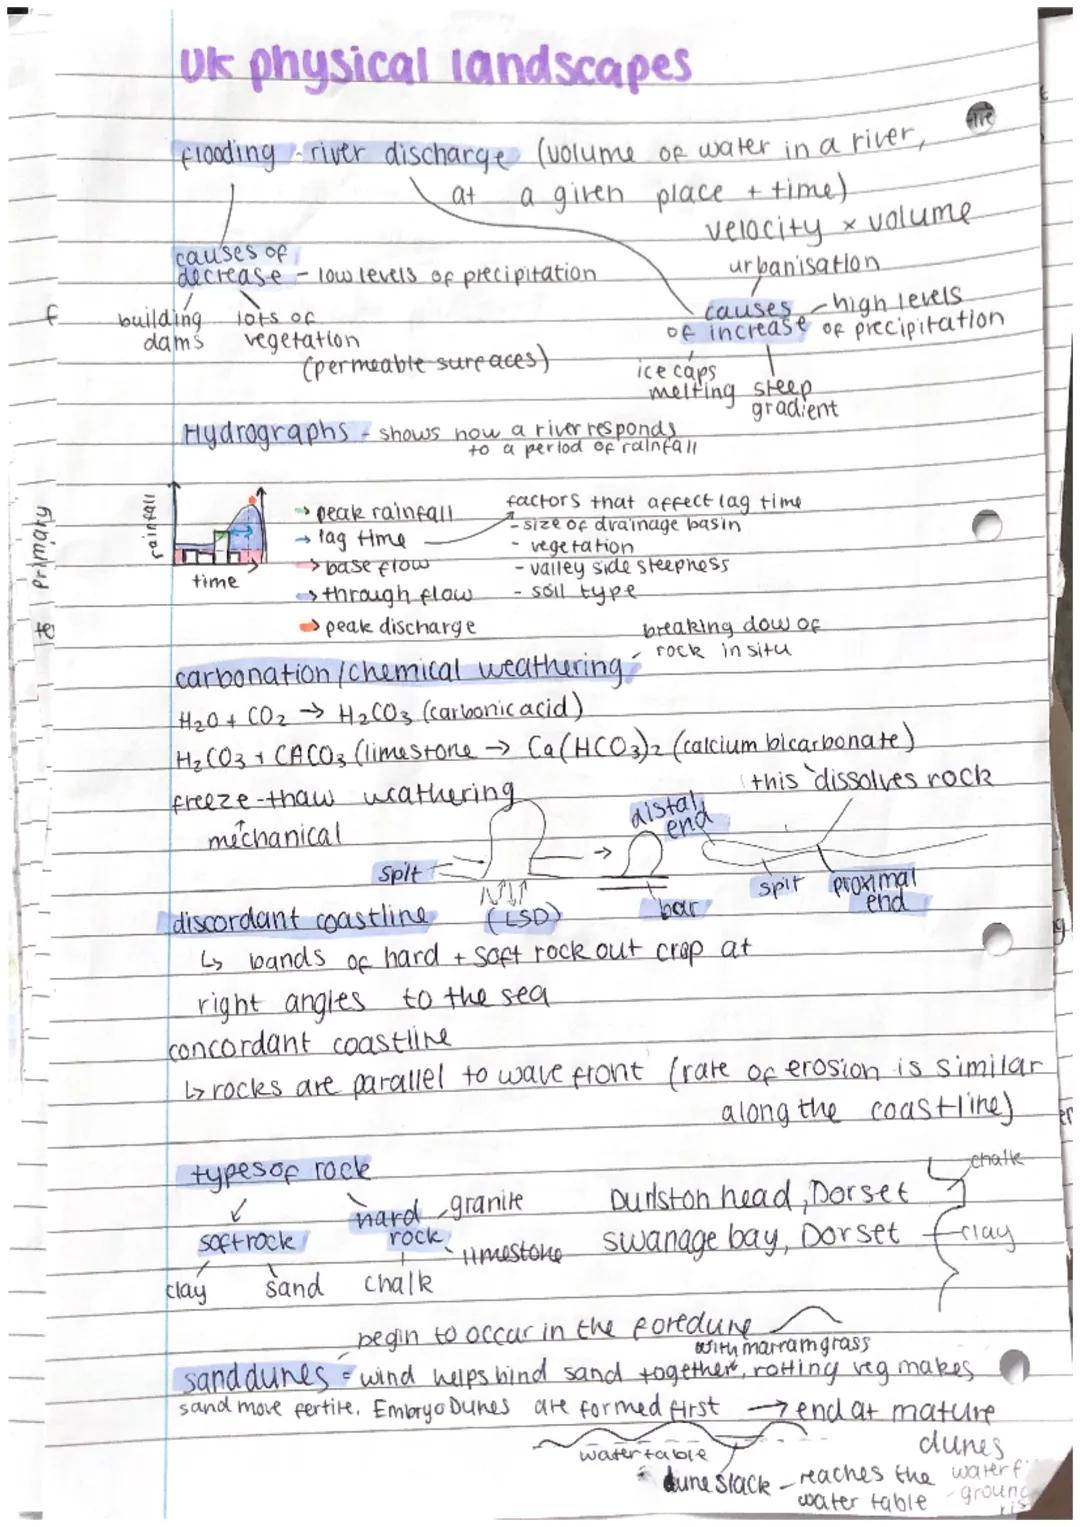 UK physical landscapes
flooding - river discharge (volume of water in a river,
at a given place + time)
velocity x volume
causes of
decrease - low levels of precipitation
building
dams
lots of
vegetation
(permeable surfaces)
urbanisation
causes
of increase
high levels
of precipitation
ice caps
melting
steep
gradient
Hydrographs - shows how a river responds
to a period of rainfall
rainfall
time
→ peak rainfall
→ lag time
→ base flow
→ through flow
→ peak discharge
factors that affect lag time
- size of drainage basin
- vegetation
- valley side steepness
- soil type
primary
breaking dow of
rock in situ
carbonation/chemical weathering
H2O + CO2 → H2CO3 (carbonic acid)
H2CO3 + CACO3 (limestone → Ca(HCO3)2 (calcium bicarbonate)
this dissolves rock
freeze-thaw weathering
mechanical
spit
(LSD)
→
bar
distal
end
spit
proximal
end
discordant coastline
↳ bands of hard + soft rock out crop at
right angles to the sea
concordant coastline
↳ rocks are parallel to wave front (rate of erosion is similar
along the coastline)
types of rock
soft rock
clay
sand
hard
rock
granite
limestone
chalk
Durlston head, Dorset
chalk
swanage bay, Dorset
clay
begin to occur in the foredune
with marram grass
sand dunes = wind helps bind sand together, rotting veg makes
sand more fertile. Embryo Dunes are formed first → end at mature
dunes
water table
dune slack - reaches the
water table